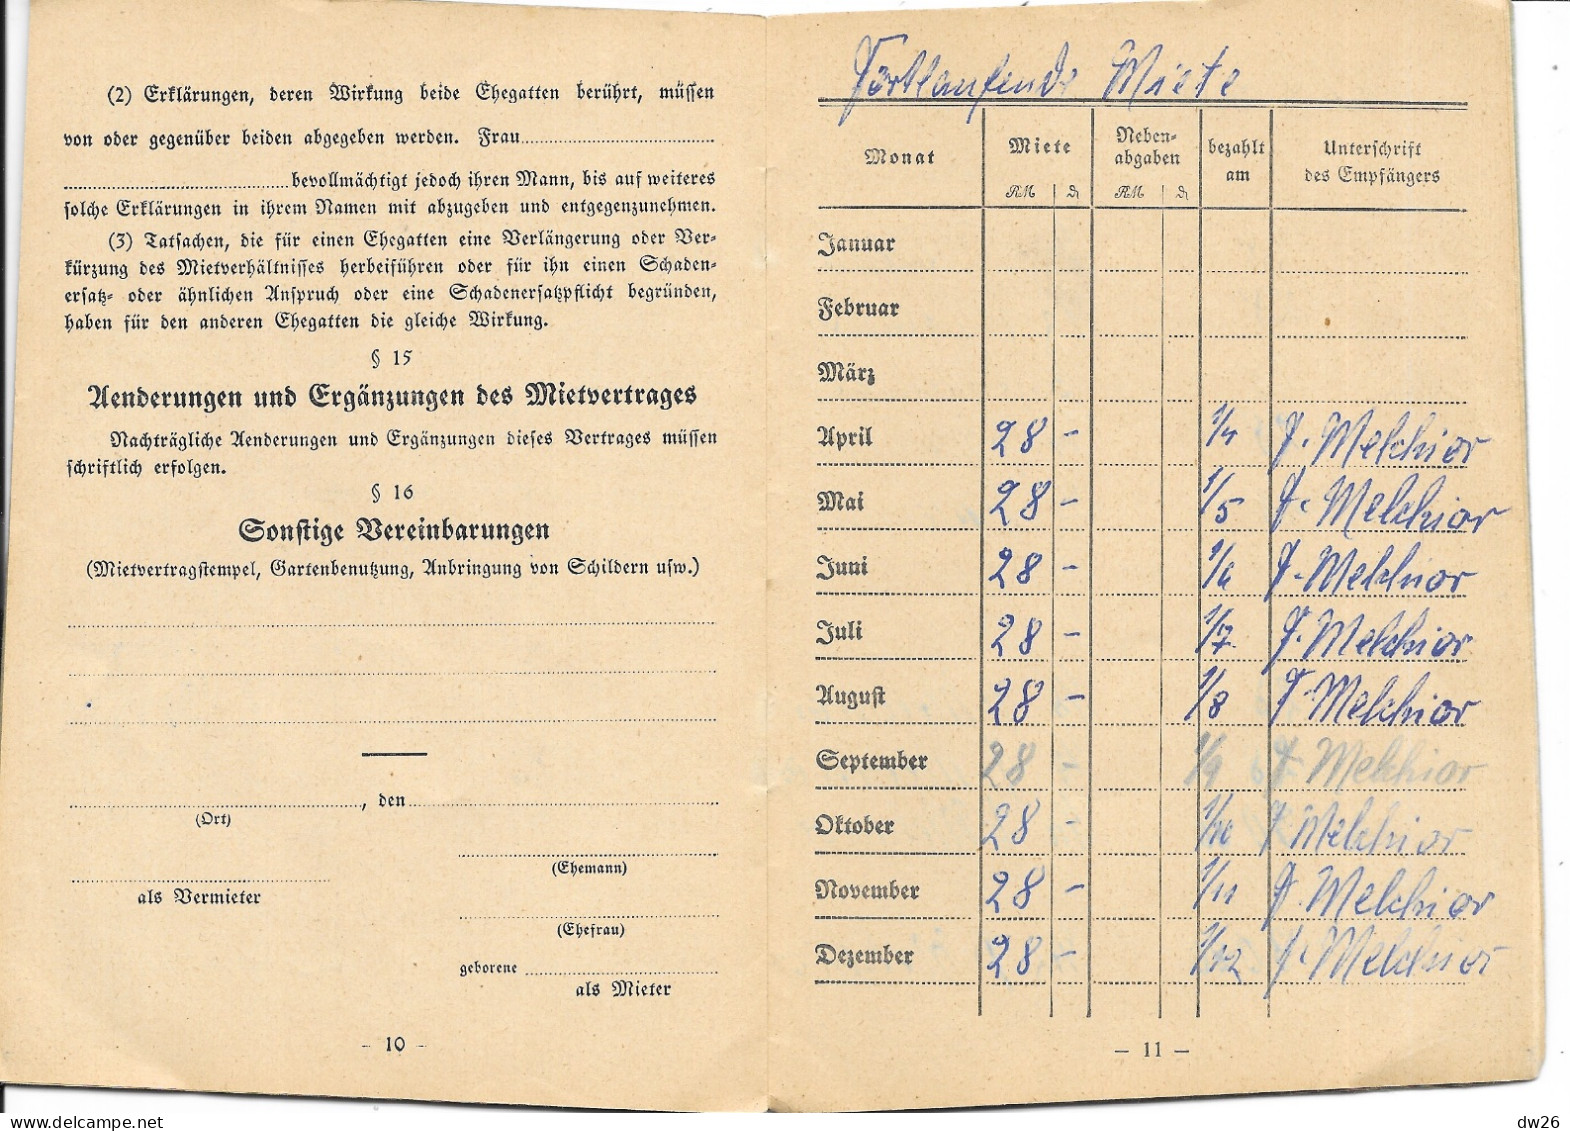 (2) Erklärungen, deren Wirkung beide Ehegatten berührt, müssen
von oder gegenüber beiden abgegeben werden. Frau
bevollmächtigt jedoch ihren Mann, bis auf weiteres
solche Erklärungen in ihrem Namen mit abzugeben und entgegenzunehmen.
(3) Tatsachen, die für einen Ehegatten eine Verlängerung oder Ver-
kürzung des Mietverhältnisses herbeiführen oder für ihn einen Schaden-
ersatz- oder ähnlichen Anspruch oder eine Schadenersatzpflicht begründen,
haben für den anderen Ehegatten die gleiche Wirkung.
§ 15
Aenderungen und Ergänzungen des Mietvertrages
Nachträgliche Aenderungen und Ergänzungen dieses Vertrages müssen
schriftlich erfolgen.
§ 16
Sonstige Vereinbarungen
(Mietvertragstempel, Gartenbenutzung, Anbringung von Schildern usw.)
, den
(Ort)
(Ehemann)
als Vermieter
(Ehefrau)
geborene
als Mieter
- 10 -
Fortlaufende Miete
Monat Miete Neben-abgaben bezahlt am Unterschrift des Empfängers
RM ₰ RM ₰
Januar
Februar
März
April 28 - 1/4 F. Melchior
Mai 28 - 1/5 F. Melchior
Juni 28 - 1/6 F. Melchior
Juli 28 - 1/7 F. Melchior
August 28 - 1/8 F. Melchior
September 28 - 1/9 F. Melchior
Oktober 28 - 1/10 F. Melchior
November 28 - 1/11 F. Melchior
Dezember 28 - 1/12 F. Melchior
- 11 -
dw26